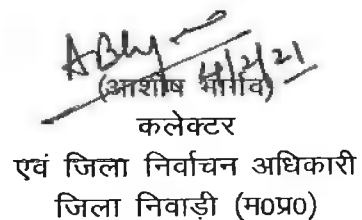 (आशीष भार्गव)
कलेक्टर
एवं जिला निर्वाचन अधिकारी
जिला निवाड़ी (म0प्र0)